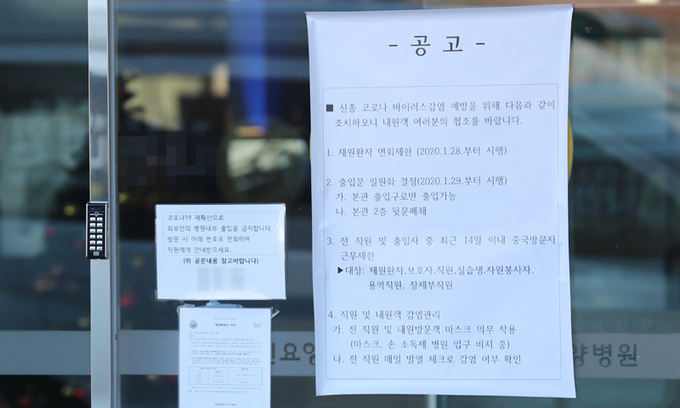 - 공 고 -
■ 신종 코로나 바이러스감염 예방을 위해 다음과 같이
조치하오니 내원객 여러분의 협조를 바랍니다.
1. 재원환자 면회제한 (2020.1.28.부터 시행)
2. 출입문 일원화 결정(2020.1.29.부터 시행)
가. 본관 출입구로만 출입가능
나. 본관 2층 뒷문폐쇄
3. 전 직원 및 출입사 중 최근 14일 이내 중국방문자
근무제한
▶대상: 재원환자,보호자,직원,실습생,자원봉사자,
용역직원, 장제부직원
4. 직원 및 내원객 감염관리
가. 전 직원 및 내원방문객 마스크 의무 착용
(마스크, 손 소독제 병원 입구 비치 중)
나. 전 직원 매일 발열 체크로 감염 여부 확인
코로나19 재확산으로
외부인의 병원내부 출입을 금지합니다
방문 시 아래 번호로 전화하여
직원에게 안내받으세요.
(위 공문내용 참고바랍니다)
요양
양병원